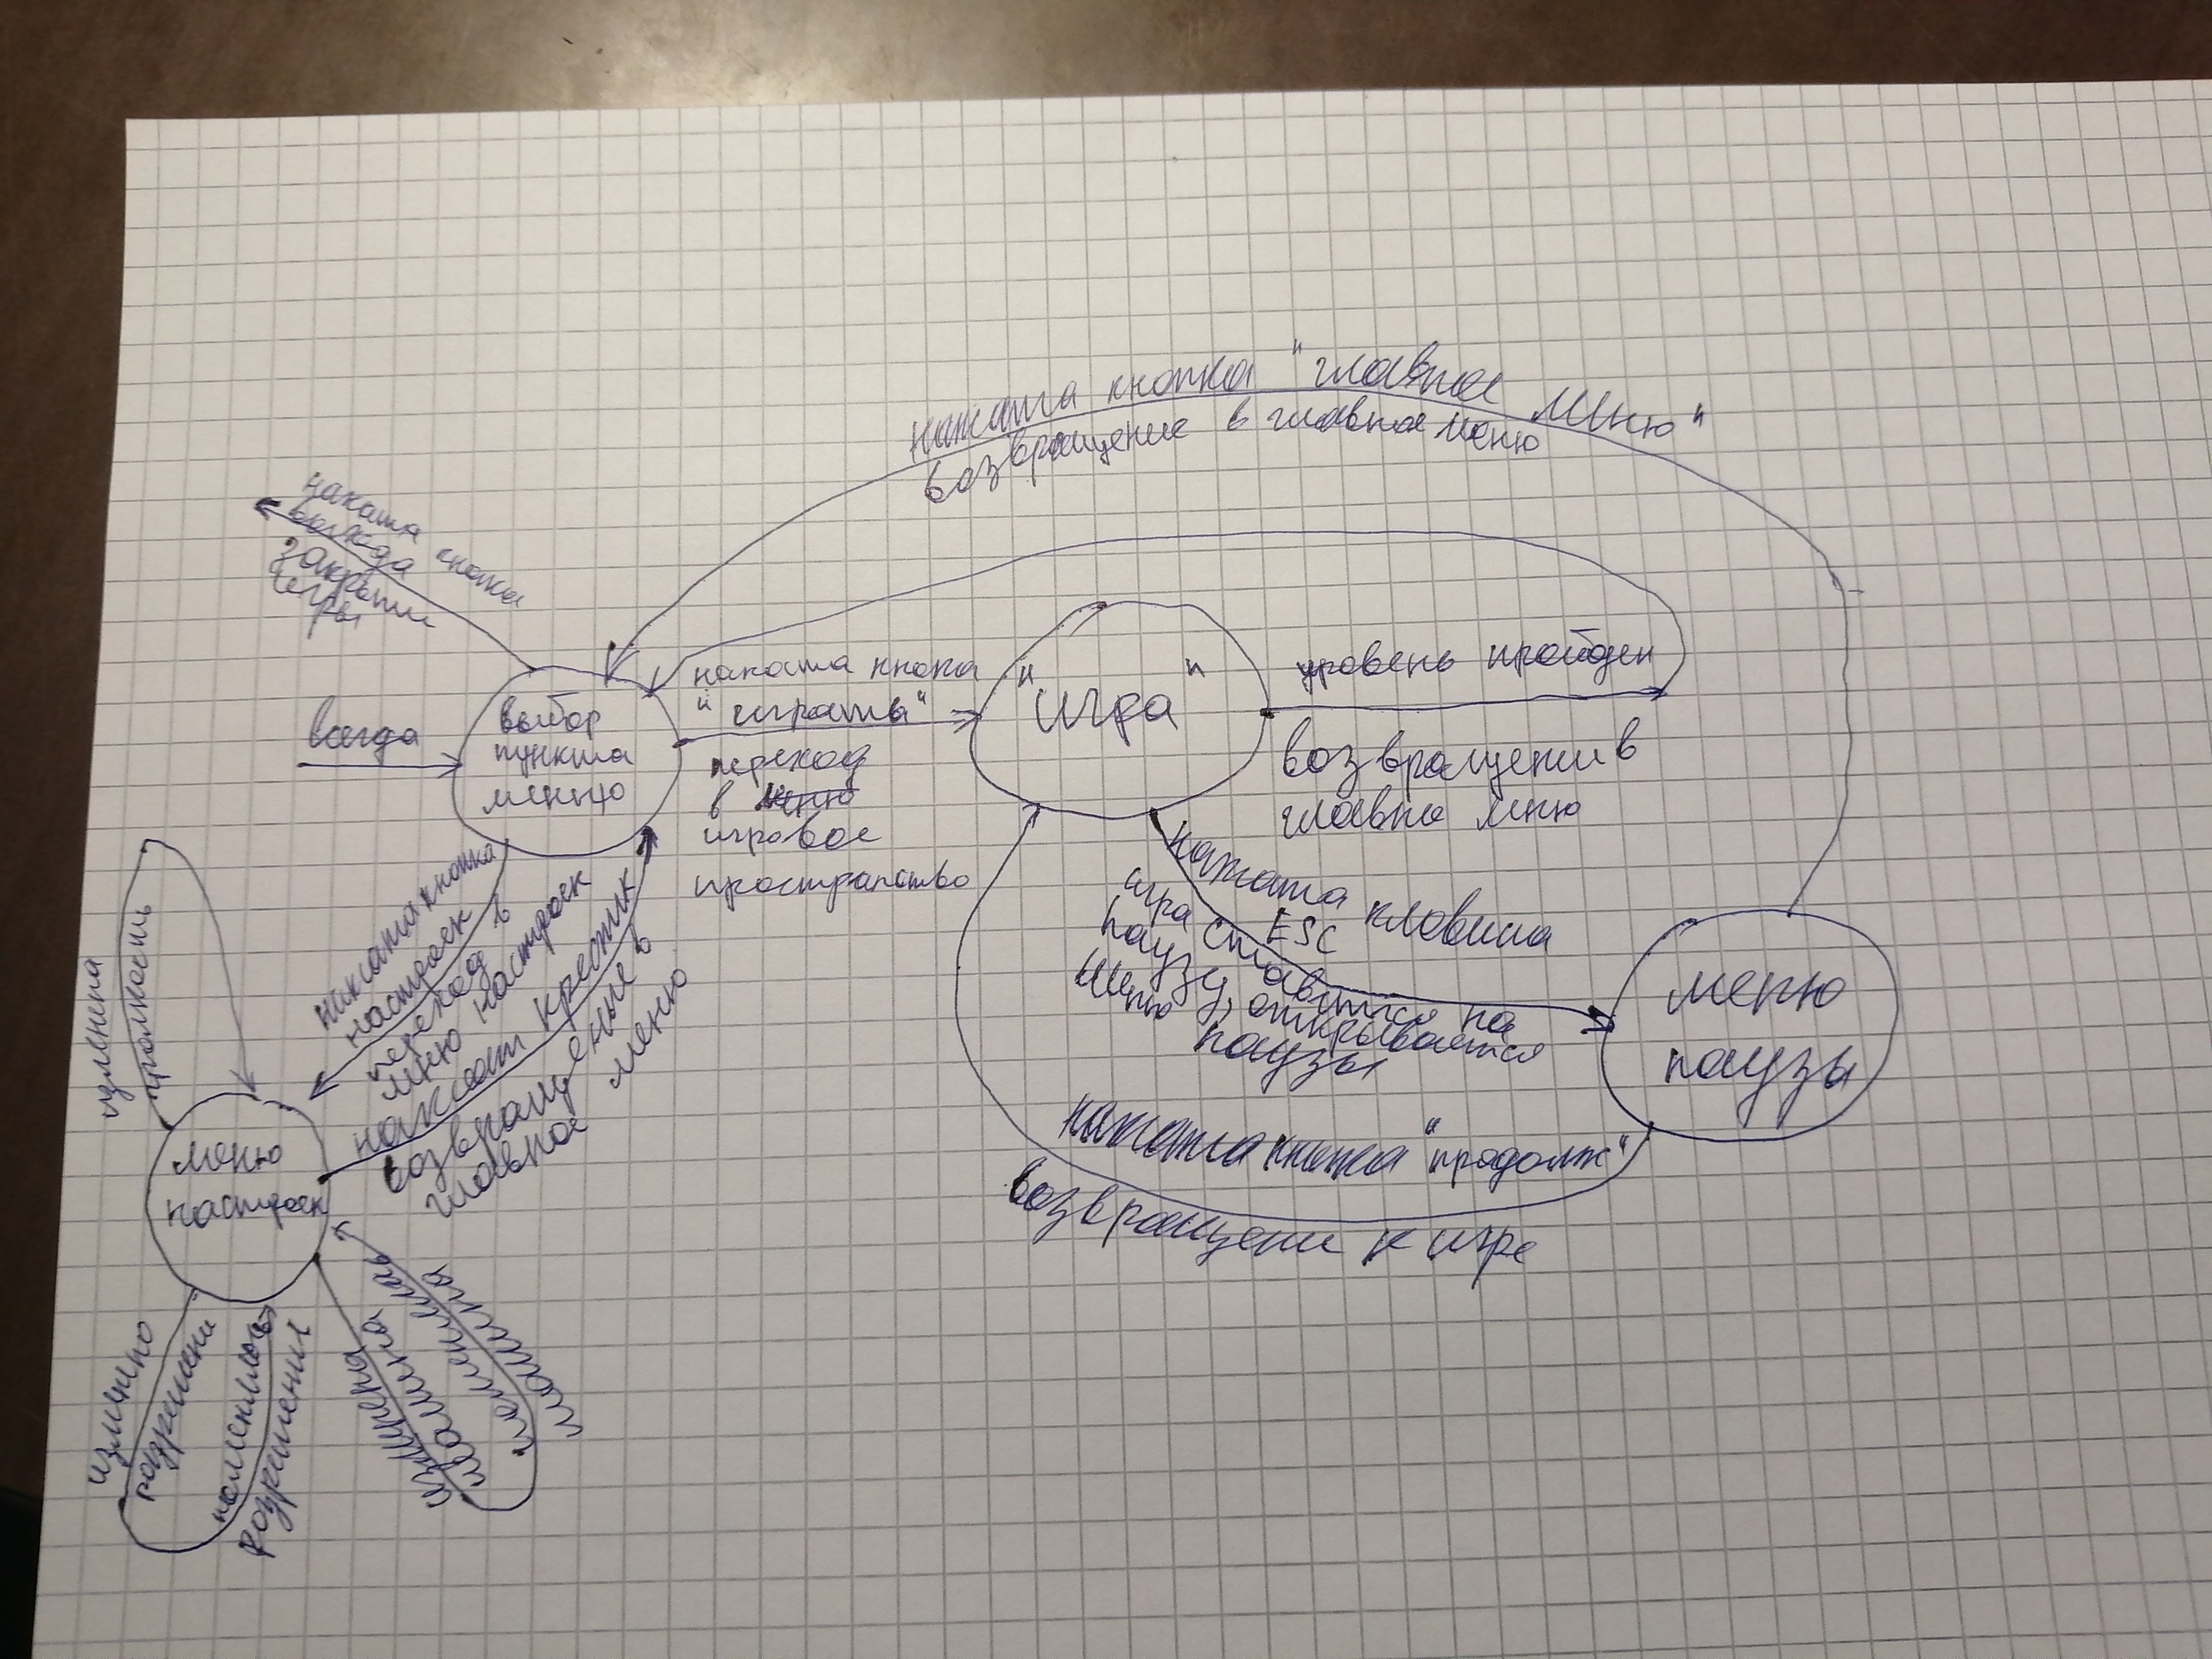 нажата кнопка "главное меню"
возвращение в главное меню
нажата кнопка
выхода
закрыти
игры
всегда
выбор
пункта
меню
нажата кнопка
"играть"
переход
в меню
игровое
пространство
"игра"
уровень пройден
возвращени в
главно мню
нажата клавиша
ESC
игра ставится на
паузу, открывается
меню паузы
меню
паузы
нажата кнопка "продолж"
возвращени к игре
нажата кнопка
настроек
переход в
мню настроек
нажат крестик
возвращение в
главное меню
изменена
громкость
меню
настроек
изменено
разрешени
поменялось
разрешение